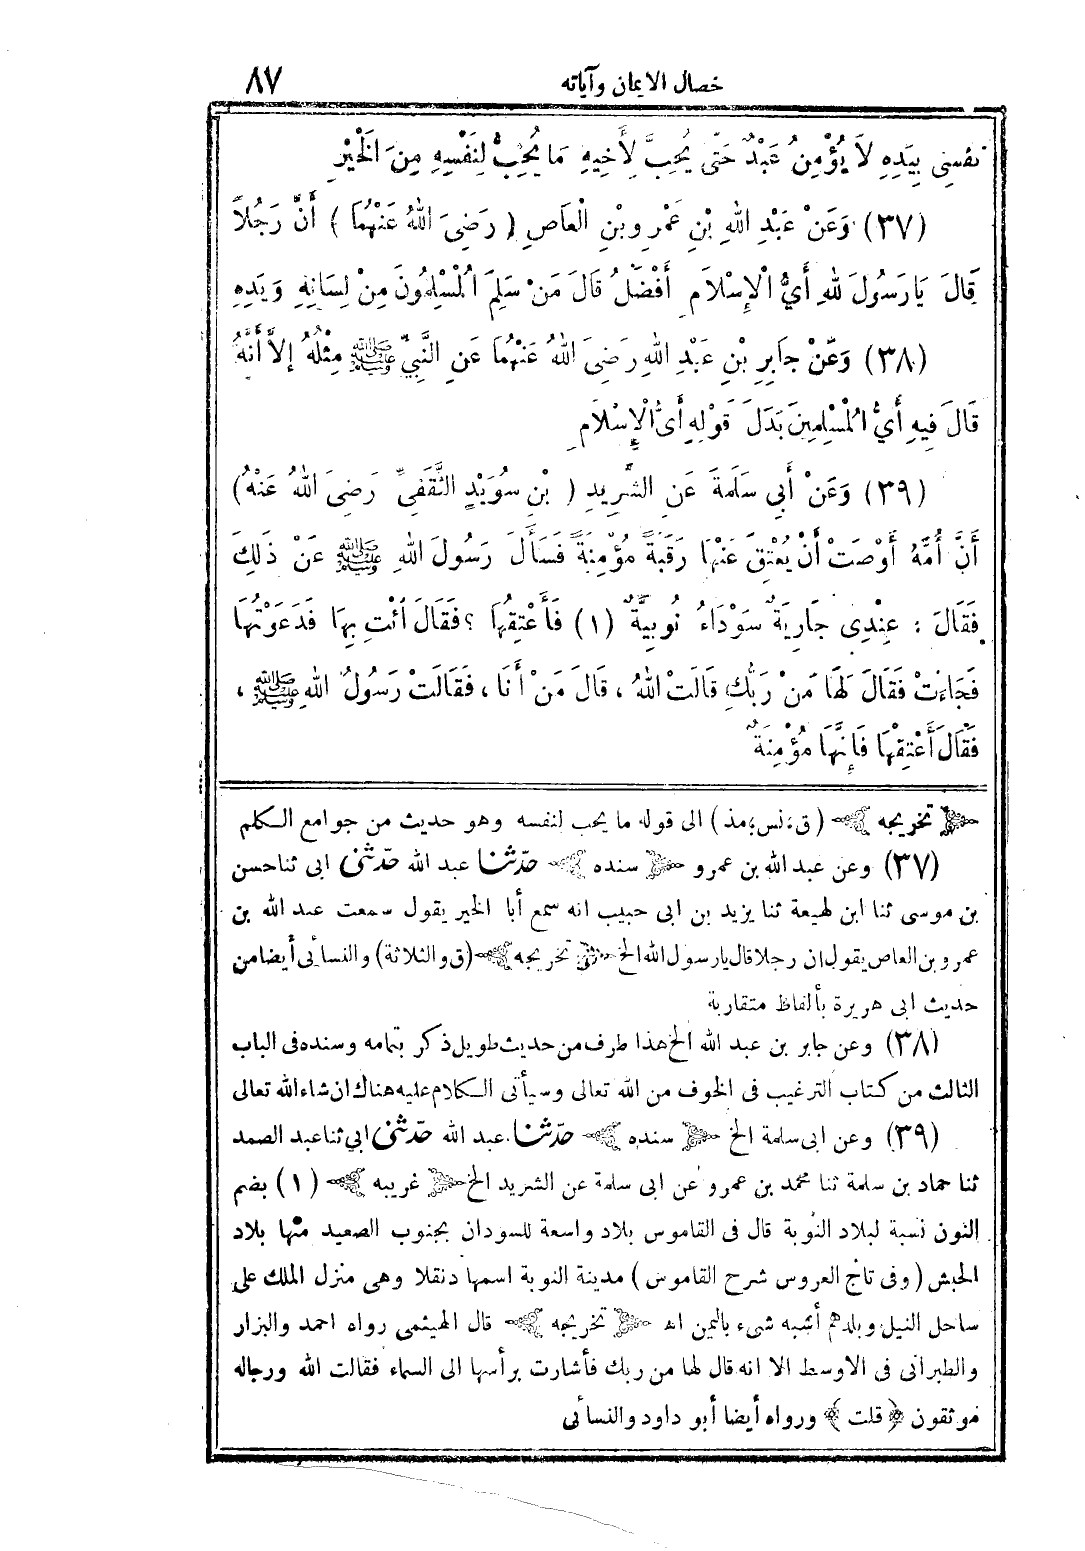 خصال الايمان وآياته ٨٧
نَفْسِى بِيَدِهِ لاَ يُؤْمِنُ عَبْدٌ حَتَّى يُحِبَّ لِأَخِيهِ مَا يُحِبُّ لِنَفْسِهِ مِنَ الْخَيْرِ
(٣٧) وَعَنْ عَبْدِ اللهِ بْنِ عَمْرِو بْنِ الْعَاصِ ( رَضِىَ اللهُ عَنْهُمَا ) أَنَّ رَجُلاً
قَالَ يَارَسُولَ للهِ أَيُّ الْإِسْلاَمِ أَفْضَلُ قَالَ مَنْ سَلِمَ الْمُسْلِمُونَ مِنْ لِسَانِهِ وَيَدِهِ
(٣٨) وَعَنْ جَابِرِ بْنِ عَبْدِ اللهِ رَضِىَ اللهُ عَنْهُمَا عَنِ النَّبِيِّ ﷺ مِثْلُهُ إِلاَّ أَنَّهُ
قَالَ فِيهِ أَيُّ الْمُسْلِمِينَ بَدَلَ قَوْلِهِ أَىُّ الْإِسْلاَمِ
(٣٩) وَعَنْ أَبِي سَلَمَةَ عَنِ الشَّرِيدِ ( بْنِ سُوَيْدٍ الثَّقَفِىِّ رَضِىَ اللهُ عَنْهُ )
أَنَّ أُمَّهُ أَوْصَتْ أَنْ يُعْتِقَ عَنْهَا رَقَبَةً مُؤْمِنَةً فَسَأَلَ رَسُولَ اللهِ ﷺ عَنْ ذَلِكَ
فَقَالَ : عِنْدِى جَارِيَةٌ سَوْدَاءُ نُوبِيَّةٌ (١) فَأَعْتِقُهَا ؟ فَقَالَ ائْتِ بِهَا فَدَعَوْتُهَا
فَجَاءَتْ فَقَالَ لَهَا مَنْ رَبُّكِ قَالَتْ اللهُ ، قَالَ مَنْ أَنَا ، فَقَالَتْ رَسُولُ اللهِ ﷺ ،
فَقَالَ أَعْتِقْهَا فَإِنَّهَا مُؤْمِنَةٌ
﴿ تخريجه ﴾ (ق،نس،مذ) الى قوله ما يحب لنفسه وهو حديث من جوامع الكلم
(٣٧) وعن عبد الله بن عمرو ﴿ سنده ﴾ حدّثنا عبد الله حدّثنى ابى ثنا حسن
بن موسى ثنا ابن لهيعة ثنا يزيد بن ابى حبيب انه سمع أبا الخير يقول سمعت عبد الله بن
عمرو بن العاص يقول ان رجلا قال يارسول الله الخ ﴿ تخريجه ﴾ (ق والثلاثة) والنسائى أيضا من
حديث ابى هريرة بألفاظ متقاربة
(٣٨) وعن جابر بن عبد الله الخ هذا طرف من حديث طويل ذكر بتمامه وسنده فى الباب
الثالث من كتاب الترغيب فى الخوف من الله تعالى وسيأتى الكلام عليه هناك ان شاء الله تعالى
(٣٩) وعن ابى سلمة الخ ﴿ سنده ﴾ حدّثنا عبد الله حدّثنى ابي ثنا عبد الصمد
ثنا حماد بن سلمة ثنا محمد بن عمرو عن ابى سلمة عن الشريد الخ ﴿ غريبه ﴾ (١) بضم
النون نسبة لبلاد النوبة قال فى القاموس بلاد واسعة للسودان بجنوب الصعيد منها بلاد
الحبش ( وفى تاج العروس شرح القاموس ) مدينة النوبة اسمها دنقلا وهى منزل الملك على
ساحل النيل وبلدهم أشبه شىء باليمن اه ﴿ تخريجه ﴾ قال الهيثمى رواه احمد والبزار
والطبرانى فى الاوسط الا انه قال لها من ربك فأشارت برأسها الى السماء فقالت الله ورجاله
موثقون ﴿ قلت ﴾ ورواه أيضا أبو داود والنسائى